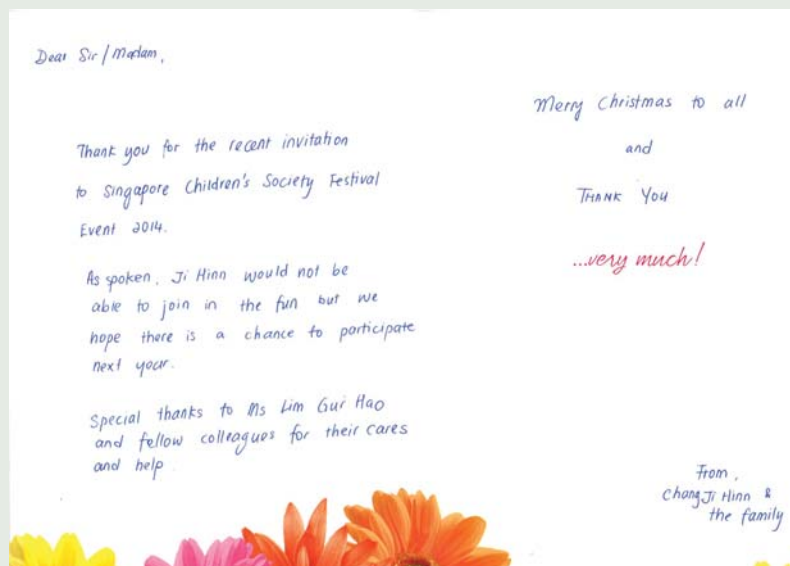 Dear Sir/Madam,
Thank you for the recent invitation
to Singapore Children's Society Festival
Event 2014.
As spoken, Ji Hinn would not be
able to join in the fun but we
hope there is a chance to participate
next year.
Special thanks to Ms Lim Gui Hao
and fellow colleagues for their cares
and help
Merry Christmas to all
and
THANK YOU
...very much!
From,
Chong Ji Hinn &
the family